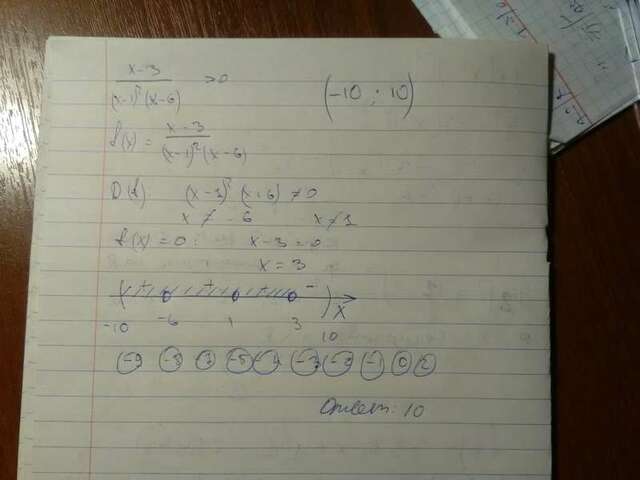 x-3 / (x-1)²(x-6) >0 (-10 ; 10)
f(x) = x-3 / (x-1)²(x-6)
D(f) (x-1)² (x-6) ≠0
x ≠ -6 x ≠ 1
f(x) = 0 : x-3 = 0
x = 3
+ + + - x
-10 -6 1 3 10
-9 0 2
Ответ: 10